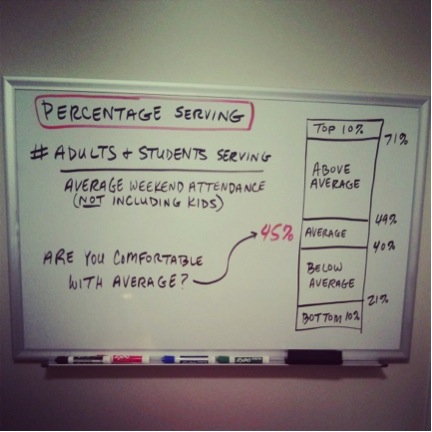 PERCENTAGE SERVING
# ADULTS + STUDENTS SERVING
AVERAGE WEEKEND ATTENDANCE
(NOT INCLUDING KIDS)
45%
ARE YOU COMFORTABLE
WITH AVERAGE?
TOP 10%
71%
ABOVE
AVERAGE
49%
AVERAGE
40%
BELOW
AVERAGE
21%
BOTTOM 10%